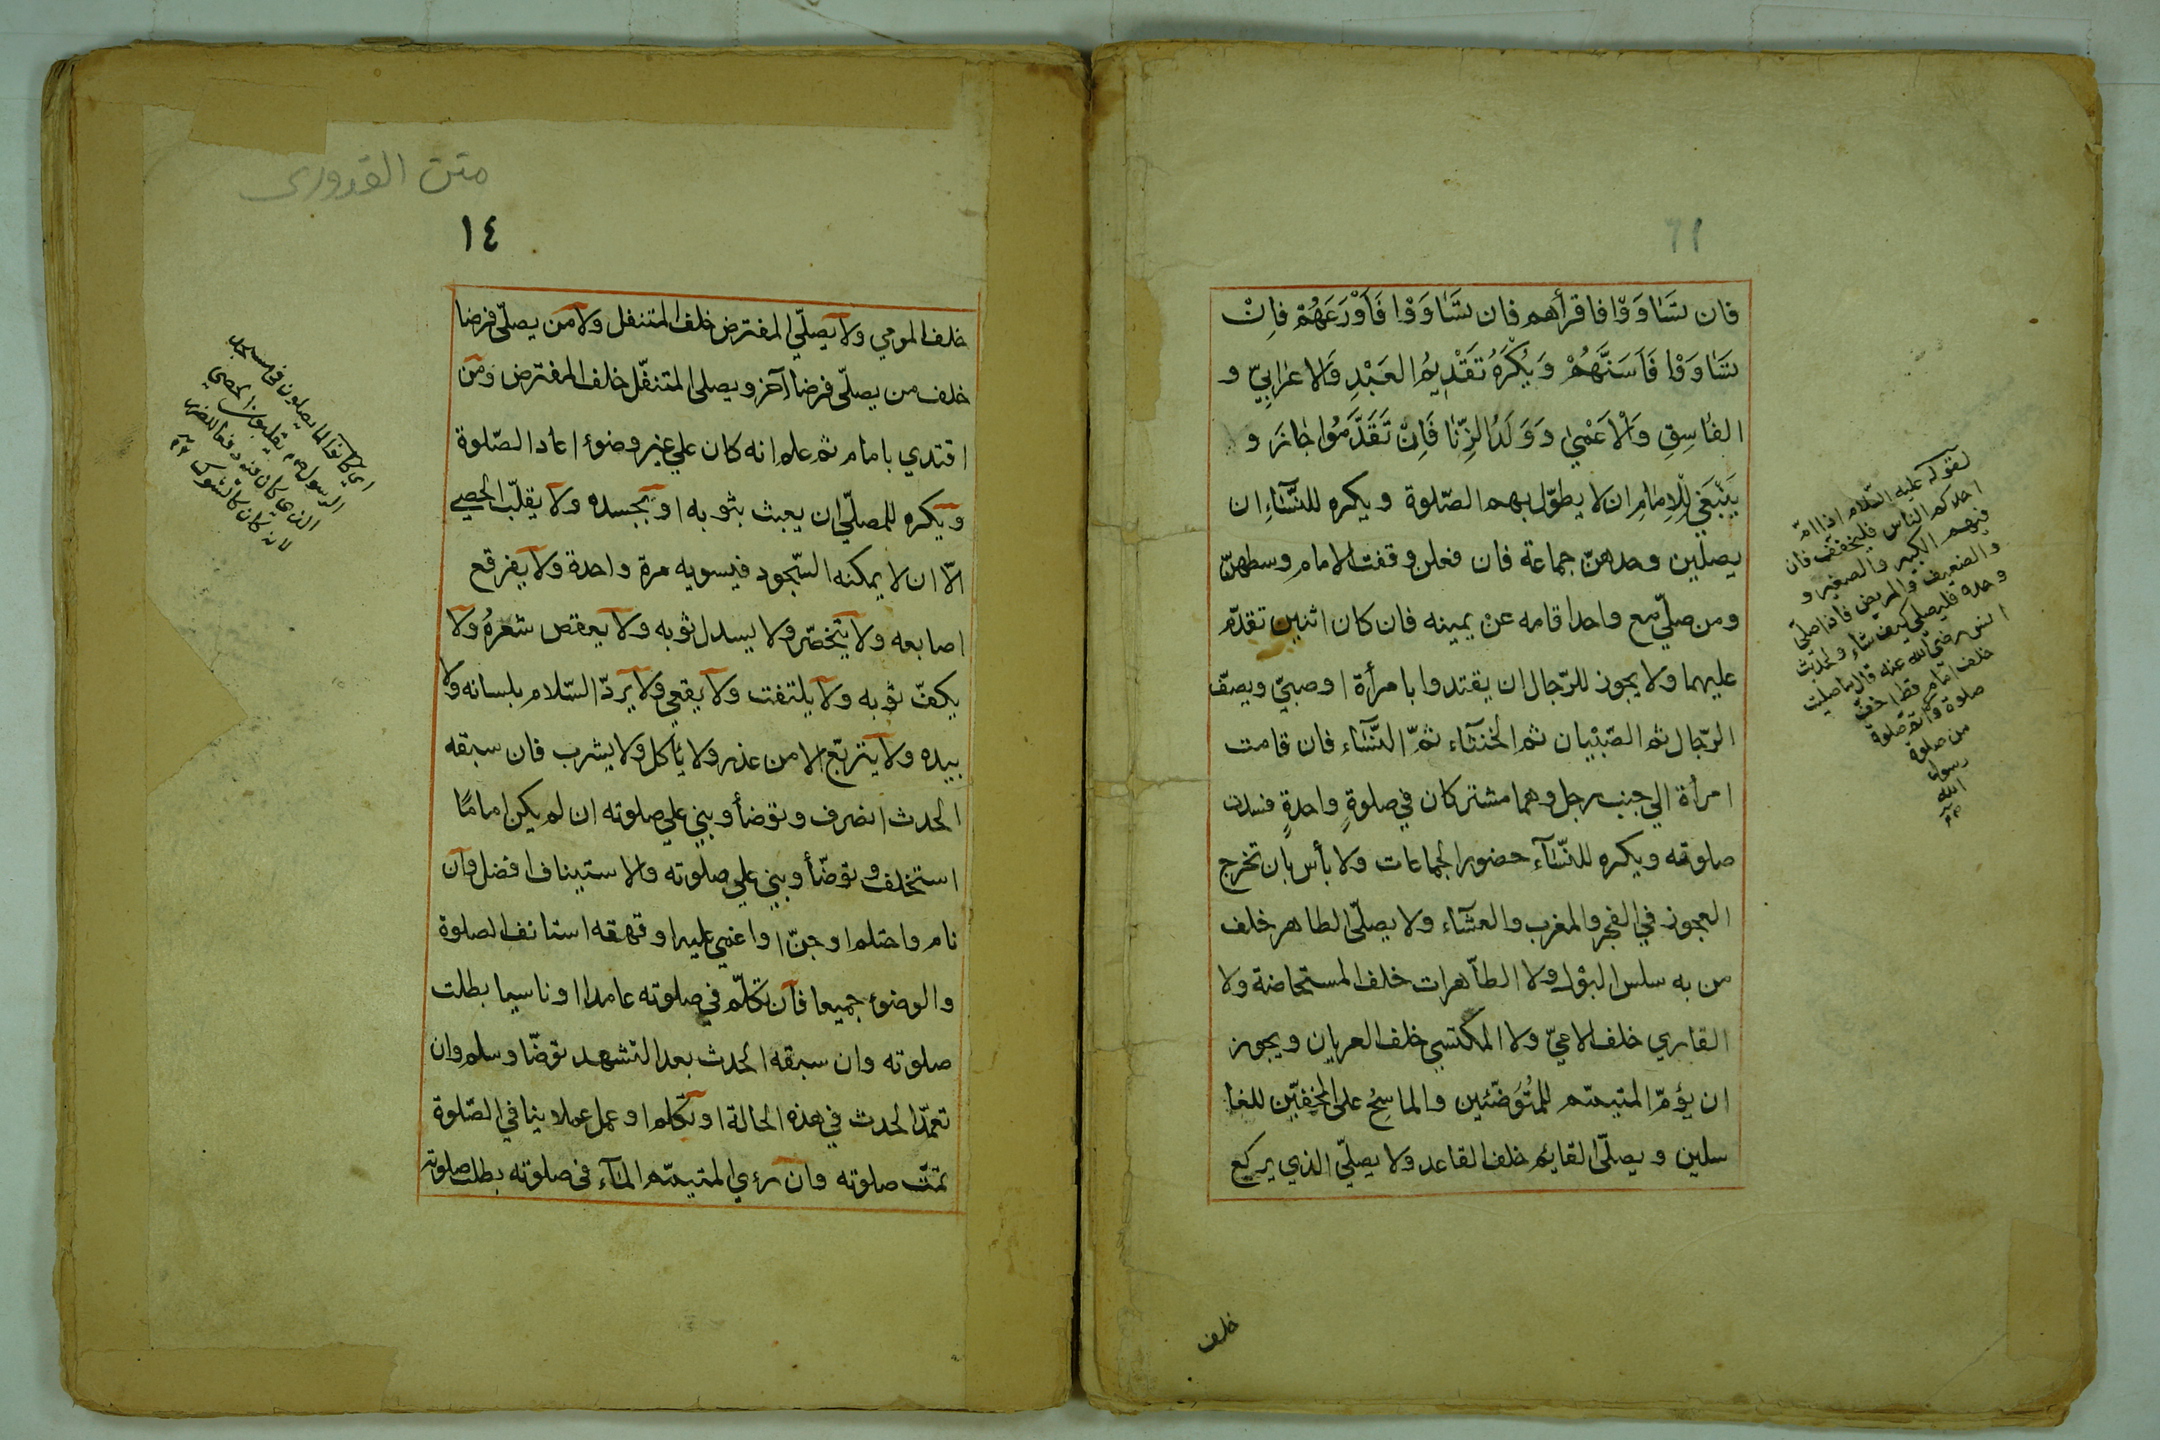 فان تساووا فاقرأهم فان تساووا فاورعهم فان
تساووا فاسنهم ويكره تقديم العبد والاعرابي و
الفاسق والاعمي وولد الزنا فان تقدموا جاز و
ينبغي للامام ان لا يطول بهم الصلوة ويكره للنساء ان
يصلين وحدهن جماعة فان فعلن وقفت الامام وسطهن
ومن صلي مع واحد اقامه عن يمينه فان كان اثنين تقدم
عليهما ولا يجوز للرجال ان يقتدوا بامرأة او صبي ويصف
الرجال ثم الصبيان ثم الخنثاء ثم النساء فان قامت
امرأة الي جنب رجل وهما مشتركان في صلوة واحدة فسدت
صلوته ويكره للنساء حضور الجماعات ولا بأس بان تخرج
العجوز في الفجر والمغرب والعشاء ولا يصلي الطاهر خلف
من به سلس البول ولا الطاهرات خلف المستحاضة ولا
القاري خلف الامي ولا المكتسي خلف العريان ويجوز
ان يؤم المتيمم للمتوضئين والماسح على الخفين للغا
سلين ويصلي القايم خلف القاعد ولا يصلي الذي يركع
لقوله عليه السلام اذا ام
احدكم الناس فليخفف فان
فيهم الكبير والصغير و
والضعيف والمريض فاذا صلي
وحده فليصلي كيف شاء ولحديث
انس رضي الله عنه قال ما صليت
خلف امام قط اخف
صلوة واتم صلوة
من صلوة
رسول
الله
خلف
متن القدوري
١٤
خلف المومي ولا يصلي المفترض خلف المتنفل ولا من يصلي فرضا
خلف من يصلي فرضا آخر ويصلي المتنفل خلف المفترض ومن
اقتدي بامام ثم علم انه كان علي غير وضوء اعاد الصلوة
ويكره للمصلي ان يعبث بثوبه او بجسده ولا يقلب الحصي
الا ان لا يمكنه السجود فيسويه مرة واحدة ولا يفرقع
اصابعه ولا يتخصر ولا يسدل ثوبه ولا يعقص شعره ولا
يكف ثوبه ولا يلتفت ولا يقعي ولا يرد السلام بلسانه ولا
بيده ولا يتربع الا من عذر ولا يأكل ولا يشرب فان سبقه
الحدث انصرف وتوضأ وبني علي صلوته ان لم يكن اماما
استخلف وتوضأ وبني علي صلوته والاستيناف افضل وان
نام واحتلم او جن او اغمي عليه او قهقه استانف الصلوة
والوضوء جميعا فان تكلم في صلوته عامدا او ناسيا بطلت
صلوته وان سبقه الحدث بعد التشهد توضا وسلم وان
تعمد الحدث في هذه الحالة او تكلم او عمل عملا ينافي الصلوة
تمت صلوته وان رءي المتيمم الماء في صلوته بطلت صلوته